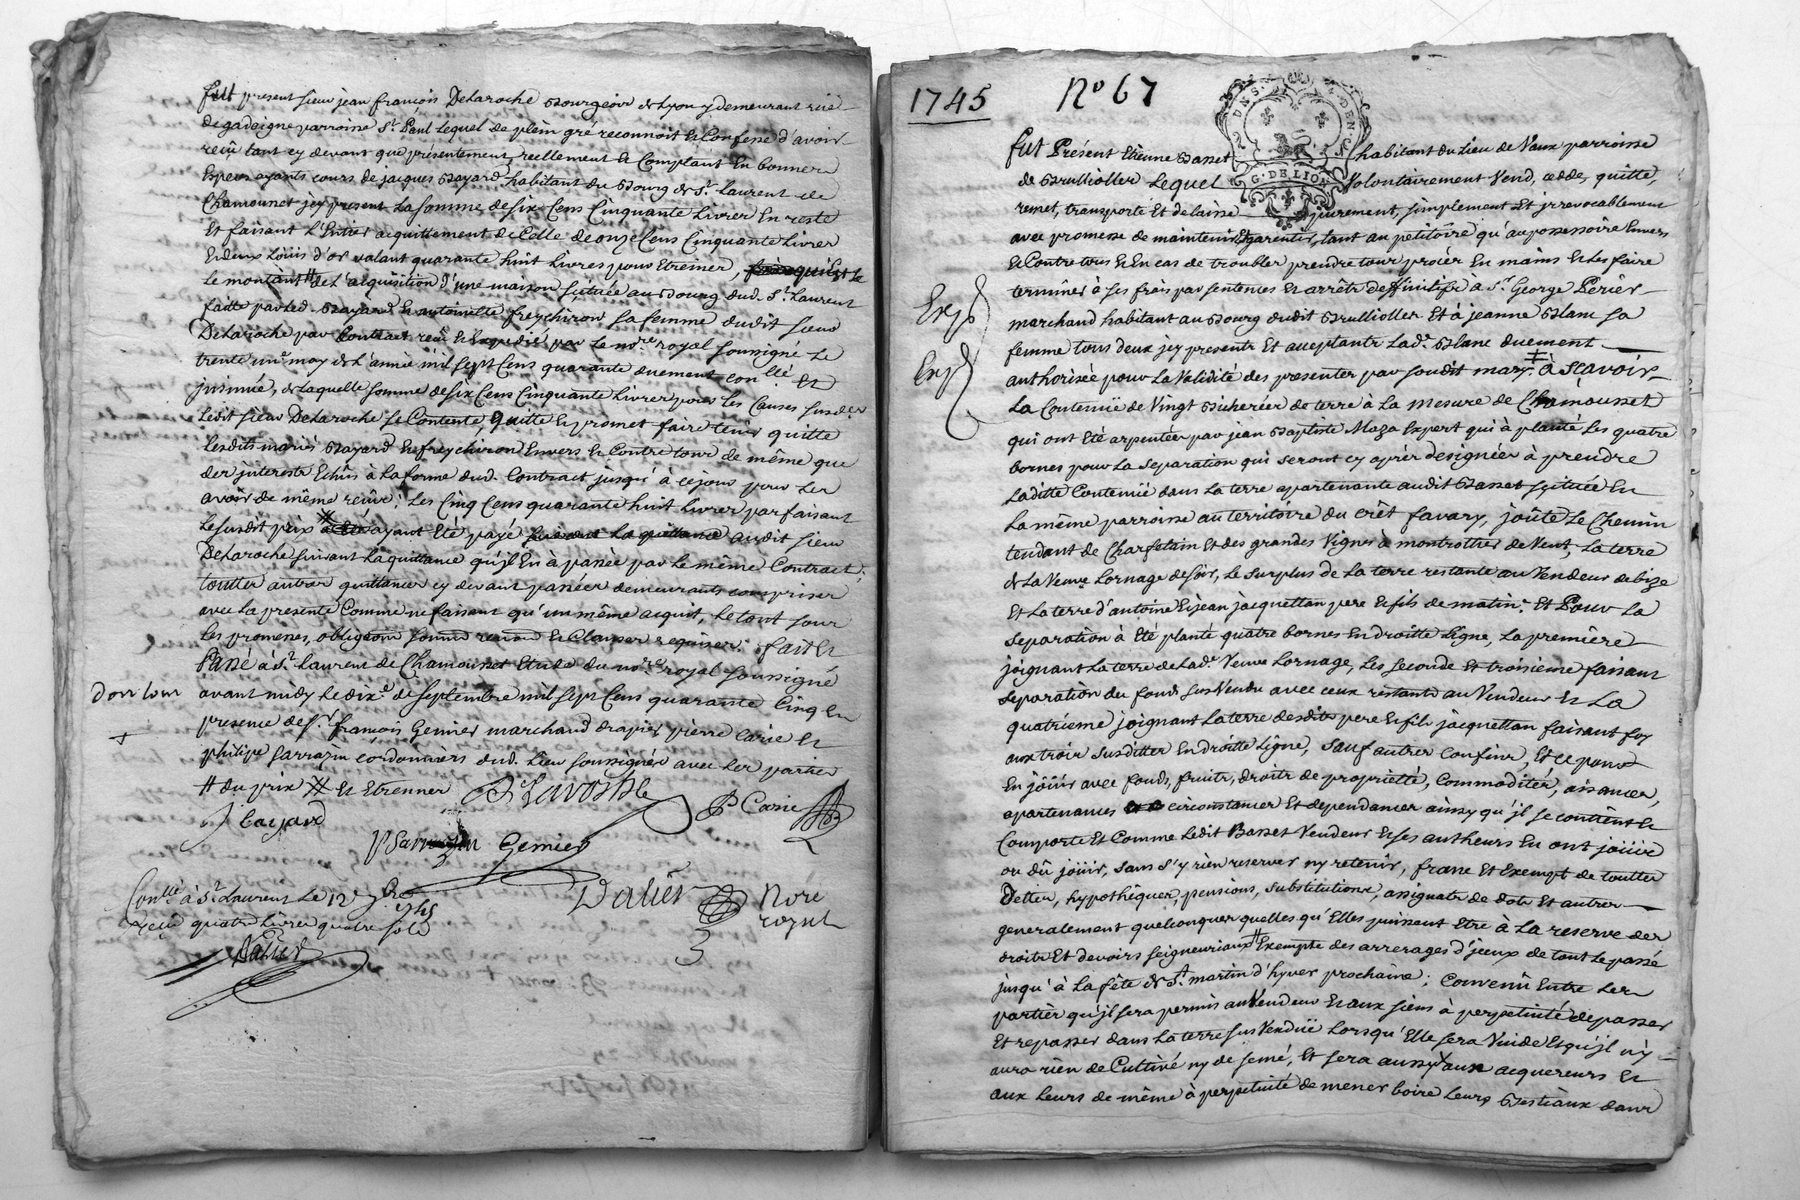 fut present sieur jean françois Delaroche Bourgeois de Lyon y demeurant rüe
de gadaigne parroisse St. Paul Lequel de plein gré reconnoit et Confesse d'avoir
reçû tant cy devant que présentement, reellement et Comptant en bonnes
Especes ayants cours de jacques Bayard habitant du Bourg de St. Laurent de
Chamousset jcy present La somme de six Cens Cinquante Livres En reste
Et faisant L'Entier acquittement de Celle de onze Cens Cinquante Livres
Et deux Louis d'or valant quarante huit Livres pour Etreines,
Le montant # de L'acquisition d'une maison scituée au Bourg dud. St. Laurent
faitte par led. Bayard Et antoinette freychiron sa femme dudit sieur
DeLaroche par Contract reçû et Expedié par Le nore. royal soussigné Le
trente un may de L'année mil sept Cens quarante duement conllé Et
jnsinué, de Laquelle somme de six Cens Cinquante Livres pour les Causes susdes
Ledit sieur DeLaroche se Contente, quitte Et promet faire tenir quitte
Lesdits mariés Bayard Et freychiron Envers et Contre tous de même que
des jnterests Echus à La forme dud. Contract jusqu'à ce jour pour Les
avoir de même reçûs; Les Cinq Cens quarante huit Livres parfaisant
Le susdit prix ayant Eté payé audit sieur
DeLaroche suivant La quittance qu'jl En à passée par Le même Contract;
touttes autres quittances cy devant passées demeurants comprises
avec La presente Comme ne faisant qu'un même acquit, Le tout sous
Les promesses, obligaôns et Clauses requises: fait et
Passé à St. Laurent de Chamousset Etude du nore. royal soussigné
avant midy Le dixe. de septembre mil sept Cens quarante Cinq En
presence de sr. françois Genier marchand drapier, pierre Carie et
philipe sarrazin cordonniers dud. Lieu soussignés avec Les parties
# du prix et Etrennes
DLaroche
P Carie
J bayard
P Sarrazin Genier
Conllé à St. Laurent Le 12 7bre
1745
Reçu quatre Livre quatre sols
Dalier
Dalier Nore
royal
1745 No 67
G. DE LION
fut Présent Etienne Basset habitant du Lieu de Vaux parroisse
de Brulliolles Lequel Volontairement Vend, cedde, quitte,
remet, transporte Et delaisse purement, simplement Et jrrevocablement
avec promesse de maintenir Et garentir, tant au petitoire qu'au possessoire Envers
Et Contre tous Et En cas de troubles prendre tous procès En mains Et Les faire
terminer à ses frais par sentences Et arrêts deffinitifs à Sr. George Perier
marchand habitant au Bourg dudit Brulliolles Et à jeanne Blanc sa
femme tous deux jcy presents Et acceptants Lade. Blanc duement
authorisée pour La Validité des presentes par sondit mary à Sçavoir
La Contenüe de Vingt Bicherées de terre à La mesure de Chamousset
qui ont Eté arpentées par jean Baptiste Maza Expert qui à planté Les quatre
bornes pour La separation qui seront cy après designées à prendre
Laditte Contenüe dans La terre apartenante audit Basset scituée En
La même parroisse au territoire du crêt favary, joûte Le Chemin
tendant de Charfetain Et des grandes Vignes à montrottier de Vent, La terre
de La Veuve Lornage de soir, Le surplus de La terre restante au Vendeur de bize
Et La terre d'antoine Et jean jacquettan pere Et fils de matin. Et Pour La
separation à Eté planté quatre bornes En droitte Ligne, La première
joignant La terre de Lade. Veuve Lornage, Les seconde Et troisieme faisant
separation du fond sus Vendu avec ceux restants au Vendeur Et La
quatrieme joignant La terre desdits pere Et fils jacquettan faisant foy
aux trois susdittes En droitte Ligne, sauf autres confins, Et ce pour
En joüir avec fonds, fruits, droits de proprietté, commodités, aisances,
apartenances circonstances Et dependances ainsy qu'jl se contient Et
Comporte Et Comme Ledit Basset Vendeur Et ses autheurs En ont joüii
ou dû joüir, sans s'y rien reserver ny retenir, franc Et Exempt de touttes
Dettes, hypothèques, pensions, substitutions, assignats de dots Et autres
generalement quelconques quelles qu'Elles puissent Etre à La reserve des
droits Et devoirs seigneuriaux # Exempte des arrerages d'jceux de tout Le passé
jusqu'à La fête de St. martin d'hyver prochaine; Convenû Entre Les
parties qu'jl sera permis au Vendeur Et aux siens à perpetuité de passer
Et repasser dans La terre sus Vendüe Lorsqu'Elle sera Vuide Et qu'jl n'y
aura rien de Cultivé ny de semé, Et sera aussy aux acquereurs Et
aux Leurs de même à perpetuité de mener boire Leurs Bestiaux dans